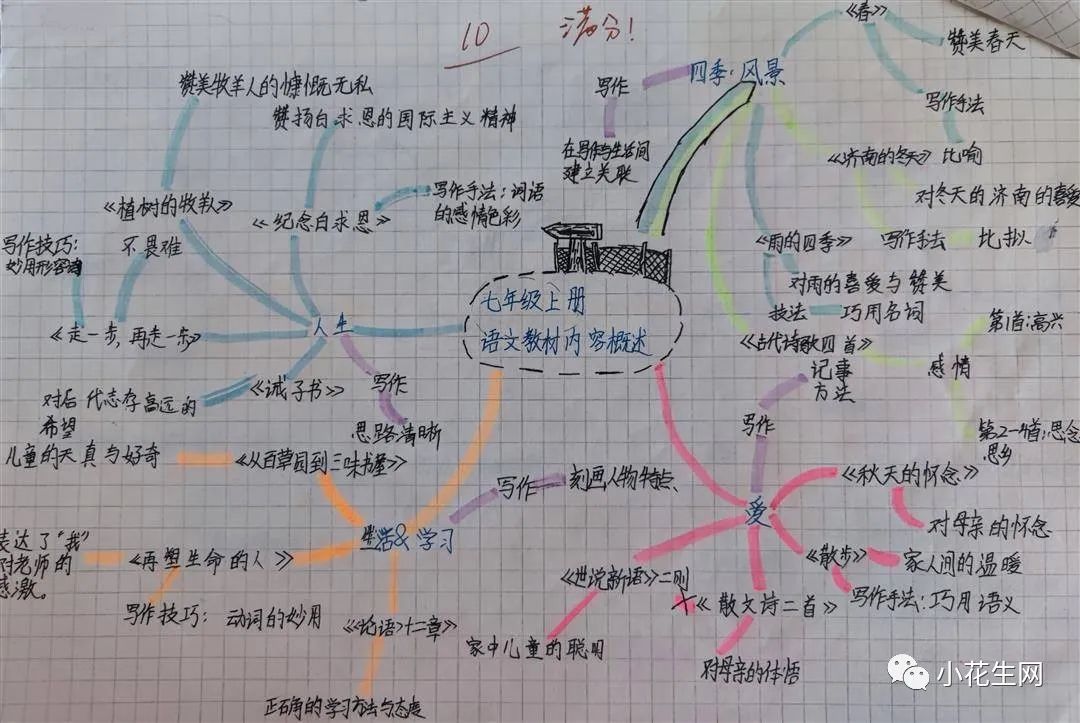 10 满分!
七年级上册
语文教材内容概述
四季·风景
写作
在写作与生活间
建立关联
《春》
赞美春天
写作手法
比喻
《济南的冬天》
对冬天的济南的喜爱
《雨的四季》
写作手法
比拟
对雨的喜爱与赞美
技法
巧用名词
《古代诗歌四首》
感情
第1首:高兴
第2-4首:思念
思乡
爱
写作
记事
方法
《秋天的怀念》
对母亲的怀念
《散步》
家人间的温暖
写作手法:巧用语义
《散文诗二首》
对母亲的体悟
《世说新语》二则
家中儿童的聪明
生活&学习
写作
刻画人物特点
《从百草园到三味书屋》
儿童的天真与好奇
《再塑生命的人》
表达了“我”
对老师的
感激。
写作技巧: 动词的妙用
《《论语》十二章》
正确的学习方法与态度
人生
写作
思路清晰
《纪念白求恩》
赞扬白求恩的国际主义精神
写作手法:词语
的感情色彩
《植树的牧羊人》
赞美牧羊人的慷慨无私
《走一步,再走一步》
不畏难
写作技巧:
妙用形容词
《诫子书》
对后代志存高远的
希望
小花生网